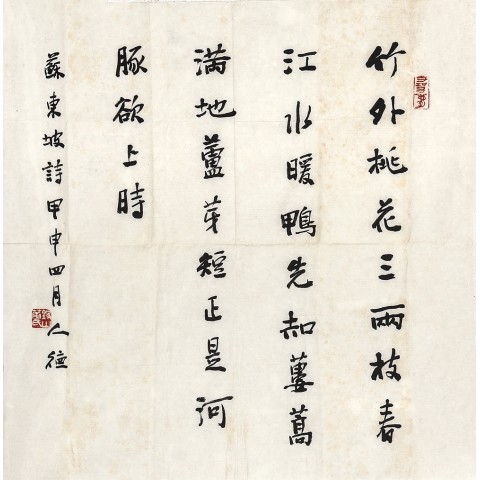 竹外桃花三兩枝春
江水暖鴨先知蔞蒿
满地蘆芽短正是河
豚欲上時
蘇東坡詩甲申四月